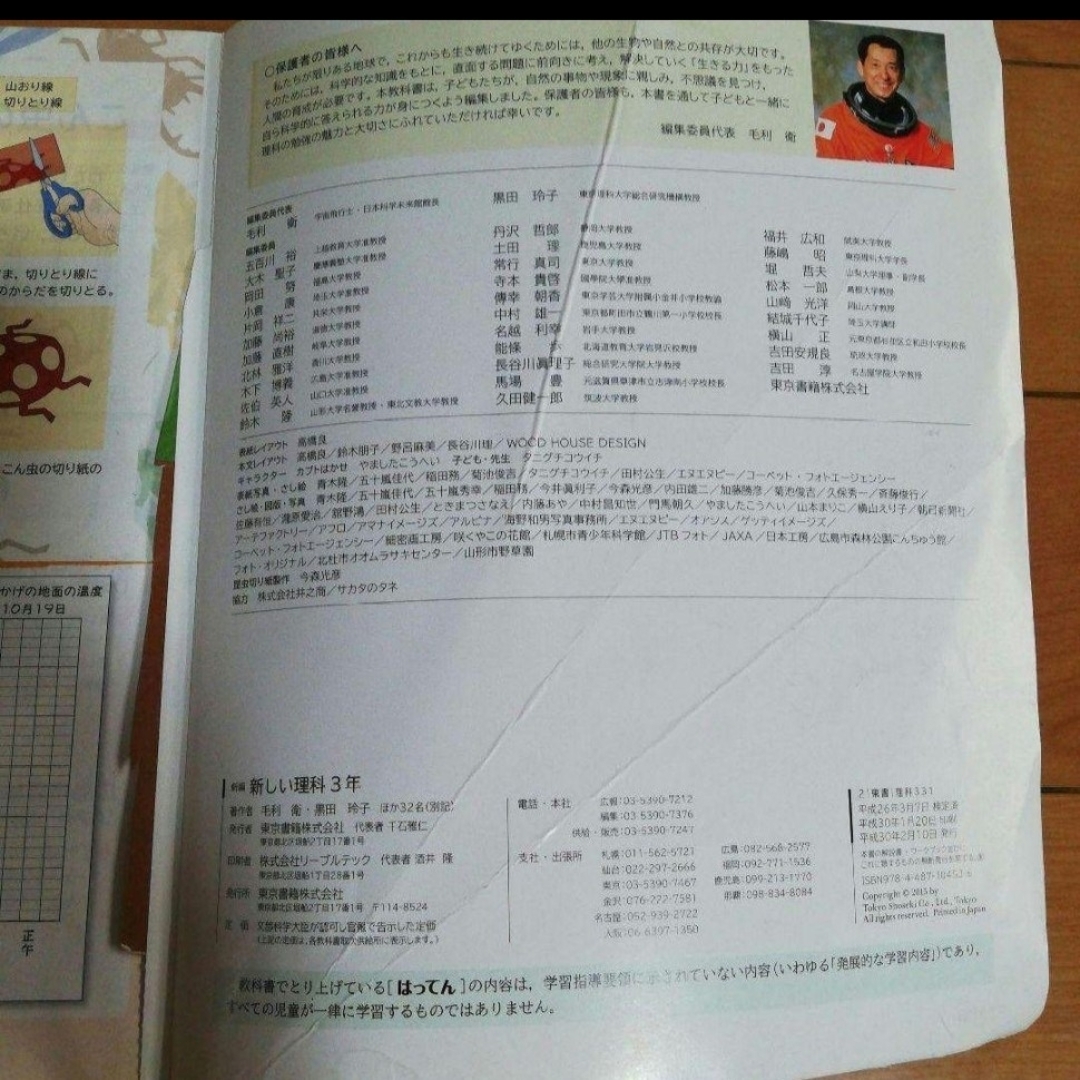 山おり線
切りとり線
ま,切りとり線に
のからだを切りとる。
こん虫の切り紙の
かげの地面の温度
10月19日
正午
○保護者の皆様へ
私たちが限りある地球で,これからも生き続けてゆくためには,他の生物や自然との共存が大切です。
そのためには,科学的な知識をもとに,直面する問題に前向きに考え,解決していく「生きる力」をもった
人間の育成が必要です。本教科書は,子どもたちが,自然の事物や現象に親しみ,不思議を見つけ,
自ら科学的に答えられる力が身につくよう編集しました。保護者の皆様も,本書を通して子どもと一緒に
理科の勉強の魅力と大切さにふれていただければ幸いです。
編集委員代表 毛利 衛
編集委員代表
毛利 衛 宇宙飛行士・日本科学未来館館長
編集委員
五百川 裕 上越教育大学准教授
大木 聖子 慶應義塾大学准教授
岡田 努 福島大学教授
小倉 康 埼玉大学准教授
片岡 祥二 共栄大学教授
加藤 尚裕
加藤 直樹 岐阜大学教授
北林 雅洋 香川大学教授
木下 博義 広島大学准教授
佐伯 英人 山口大学准教授
鈴木 隆 山形大学名誉教授・東北文教大学教授
黒田 玲子 東京理科大学総合研究機構教授
丹沢 哲郎 静岡大学教授
土田 理 鹿児島大学教授
常行 真司 東京大学教授
寺本 貴啓 國學院大學准教授
傳幸 朝香 東京学芸大学附属小金井小学校教諭
中村 雄一 東京都町田市立鶴川第一小学校校長
名越 利幸 岩手大学教授
能條 歩 北海道教育大学岩見沢校教授
長谷川眞理子 総合研究大学院大学教授
馬場 豊 元滋賀県草津市立志津南小学校校長
久田健一郎 筑波大学教授
福井 広和 就実大学教授
藤嶋 昭 東京理科大学学長
堀 哲夫 山梨大学理事・副学長
松本 一郎 島根大学教授
山﨑 光洋 岡山大学教授
結城千代子 埼玉大学講師
横山 正 元東京都杉並区立和田小学校校長
吉田安規良 琉球大学教授
吉田 淳 名古屋学院大学教授
東京書籍株式会社
表紙レイアウト 高橋良
本文レイアウト 高橋良/鈴木朋子/野呂麻美/長谷川理/WOOD HOUSE DESIGN
キャラクター カブトはかせ やましたこうへい 子ども・先生 タニグチコウイチ
表紙写真・さし絵 青木隆/五十嵐佳代/稲田務/菊池俊吉/タニグチコウイチ/田村公生/エヌエヌピー/コーベット・フォトエージェンシー
さし絵・図版・写真 青木隆/五十嵐佳代/五十嵐秀幸/稲田務/今井眞利子/今森光彦/内田雄二/加藤勝彦/菊池俊吉/久保秀一/斎藤俊行/
佐藤有恒/瀧原愛治/舘野鴻/田村公生/ときまつさなえ/内藤あや/中村昌知世/門馬朝久/やましたこうへい/山本まりこ/横山えり子/朝日新聞社/
アーテファクトリー/アフロ/アマナイメージズ/アルピナ/海野和男写真事務所/エヌエヌピー/オアシス/ゲッティイメージズ/
コーベット・フォトエージェンシー/細密画工房/咲くやこの花館/札幌市青少年科学館/JTBフォト/JAXA/日本工房/広島市森林公園こんちゅう館/
フォト・オリジナル/北杜市オオムラサキセンター/山形市野草園
昆虫切り紙製作 今森光彦
協力 株式会社井之商/サカタのタネ
新編 新しい理科3年
著作者 毛利 衛・黒田 玲子 ほか32名(別記)
発行者 東京書籍株式会社 代表者 千石雅仁
東京都北区堀船2丁目17番1号
印刷者 株式会社リーブルテック 代表者 酒井 隆
東京都北区堀船1丁目28番1号
発行所 東京書籍株式会社
東京都北区堀船2丁目17番1号 〒114-8524
定価 文部科学大臣が認可し官報で告示した定価
(上記の定価は,各教科書取次供給所に表示します。)
電話・本社 広報:03-5390-7212
編集:03-5390-7376
供給・販売:03-5390-7247
支社・出張所 札幌:011-562-5721
仙台:022-297-2666
東京:03-5390-7467
金沢:076-222-7581
名古屋:052-939-2722
大阪:06-6397-1350
広島:082-568-2577
福岡:092-771-1536
鹿児島:099-213-1770
那覇:098-834-8084
2 東書 理科331
平成26年3月7日 検定済
平成30年1月20日 印刷
平成30年2月10日 発行
本書の解説書・ワークブック並びに
Copyright © 2015 by
Tokyo Shoseki Co., Ltd., Tokyo
All rights reserved. Printed in Japan
教科書でとり上げている[はってん]の内容は,学習指導要領に示されていない内容(いわゆる「発展的な学習内容」)であり,
すべての児童が一律に学習するものではありません。